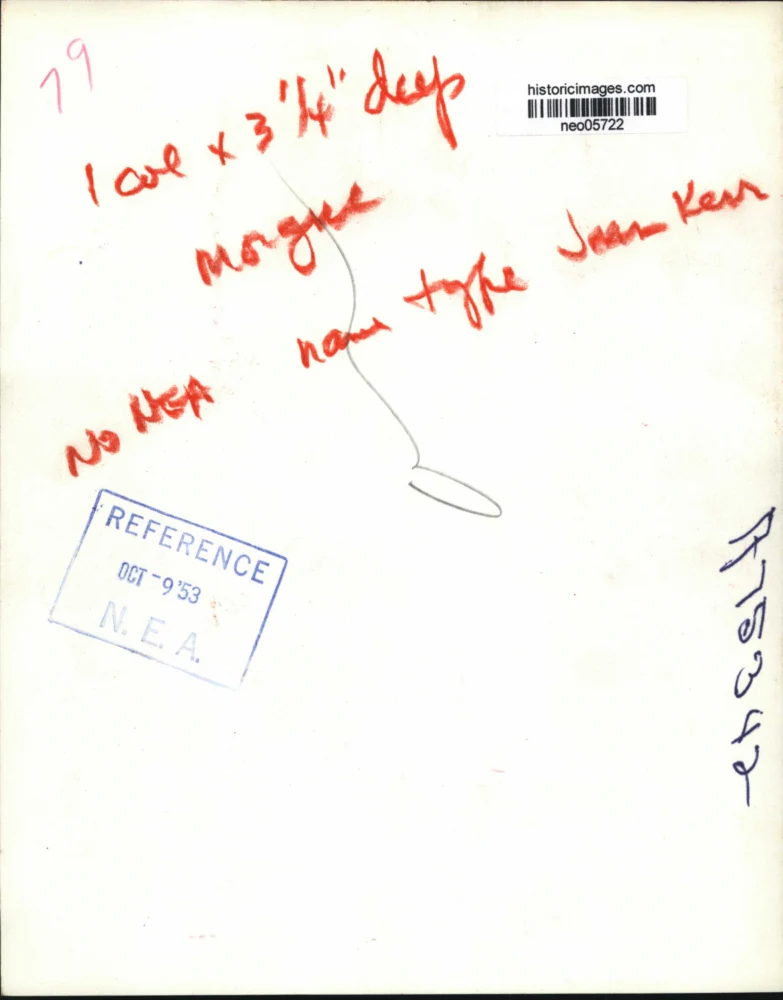 79
historicimages.com
neo05722
1 col x 3 1/4" deep
Morgue
name type Jean Kerr
No NEA
REFERENCE
OCT -9 '53
N. E. A.